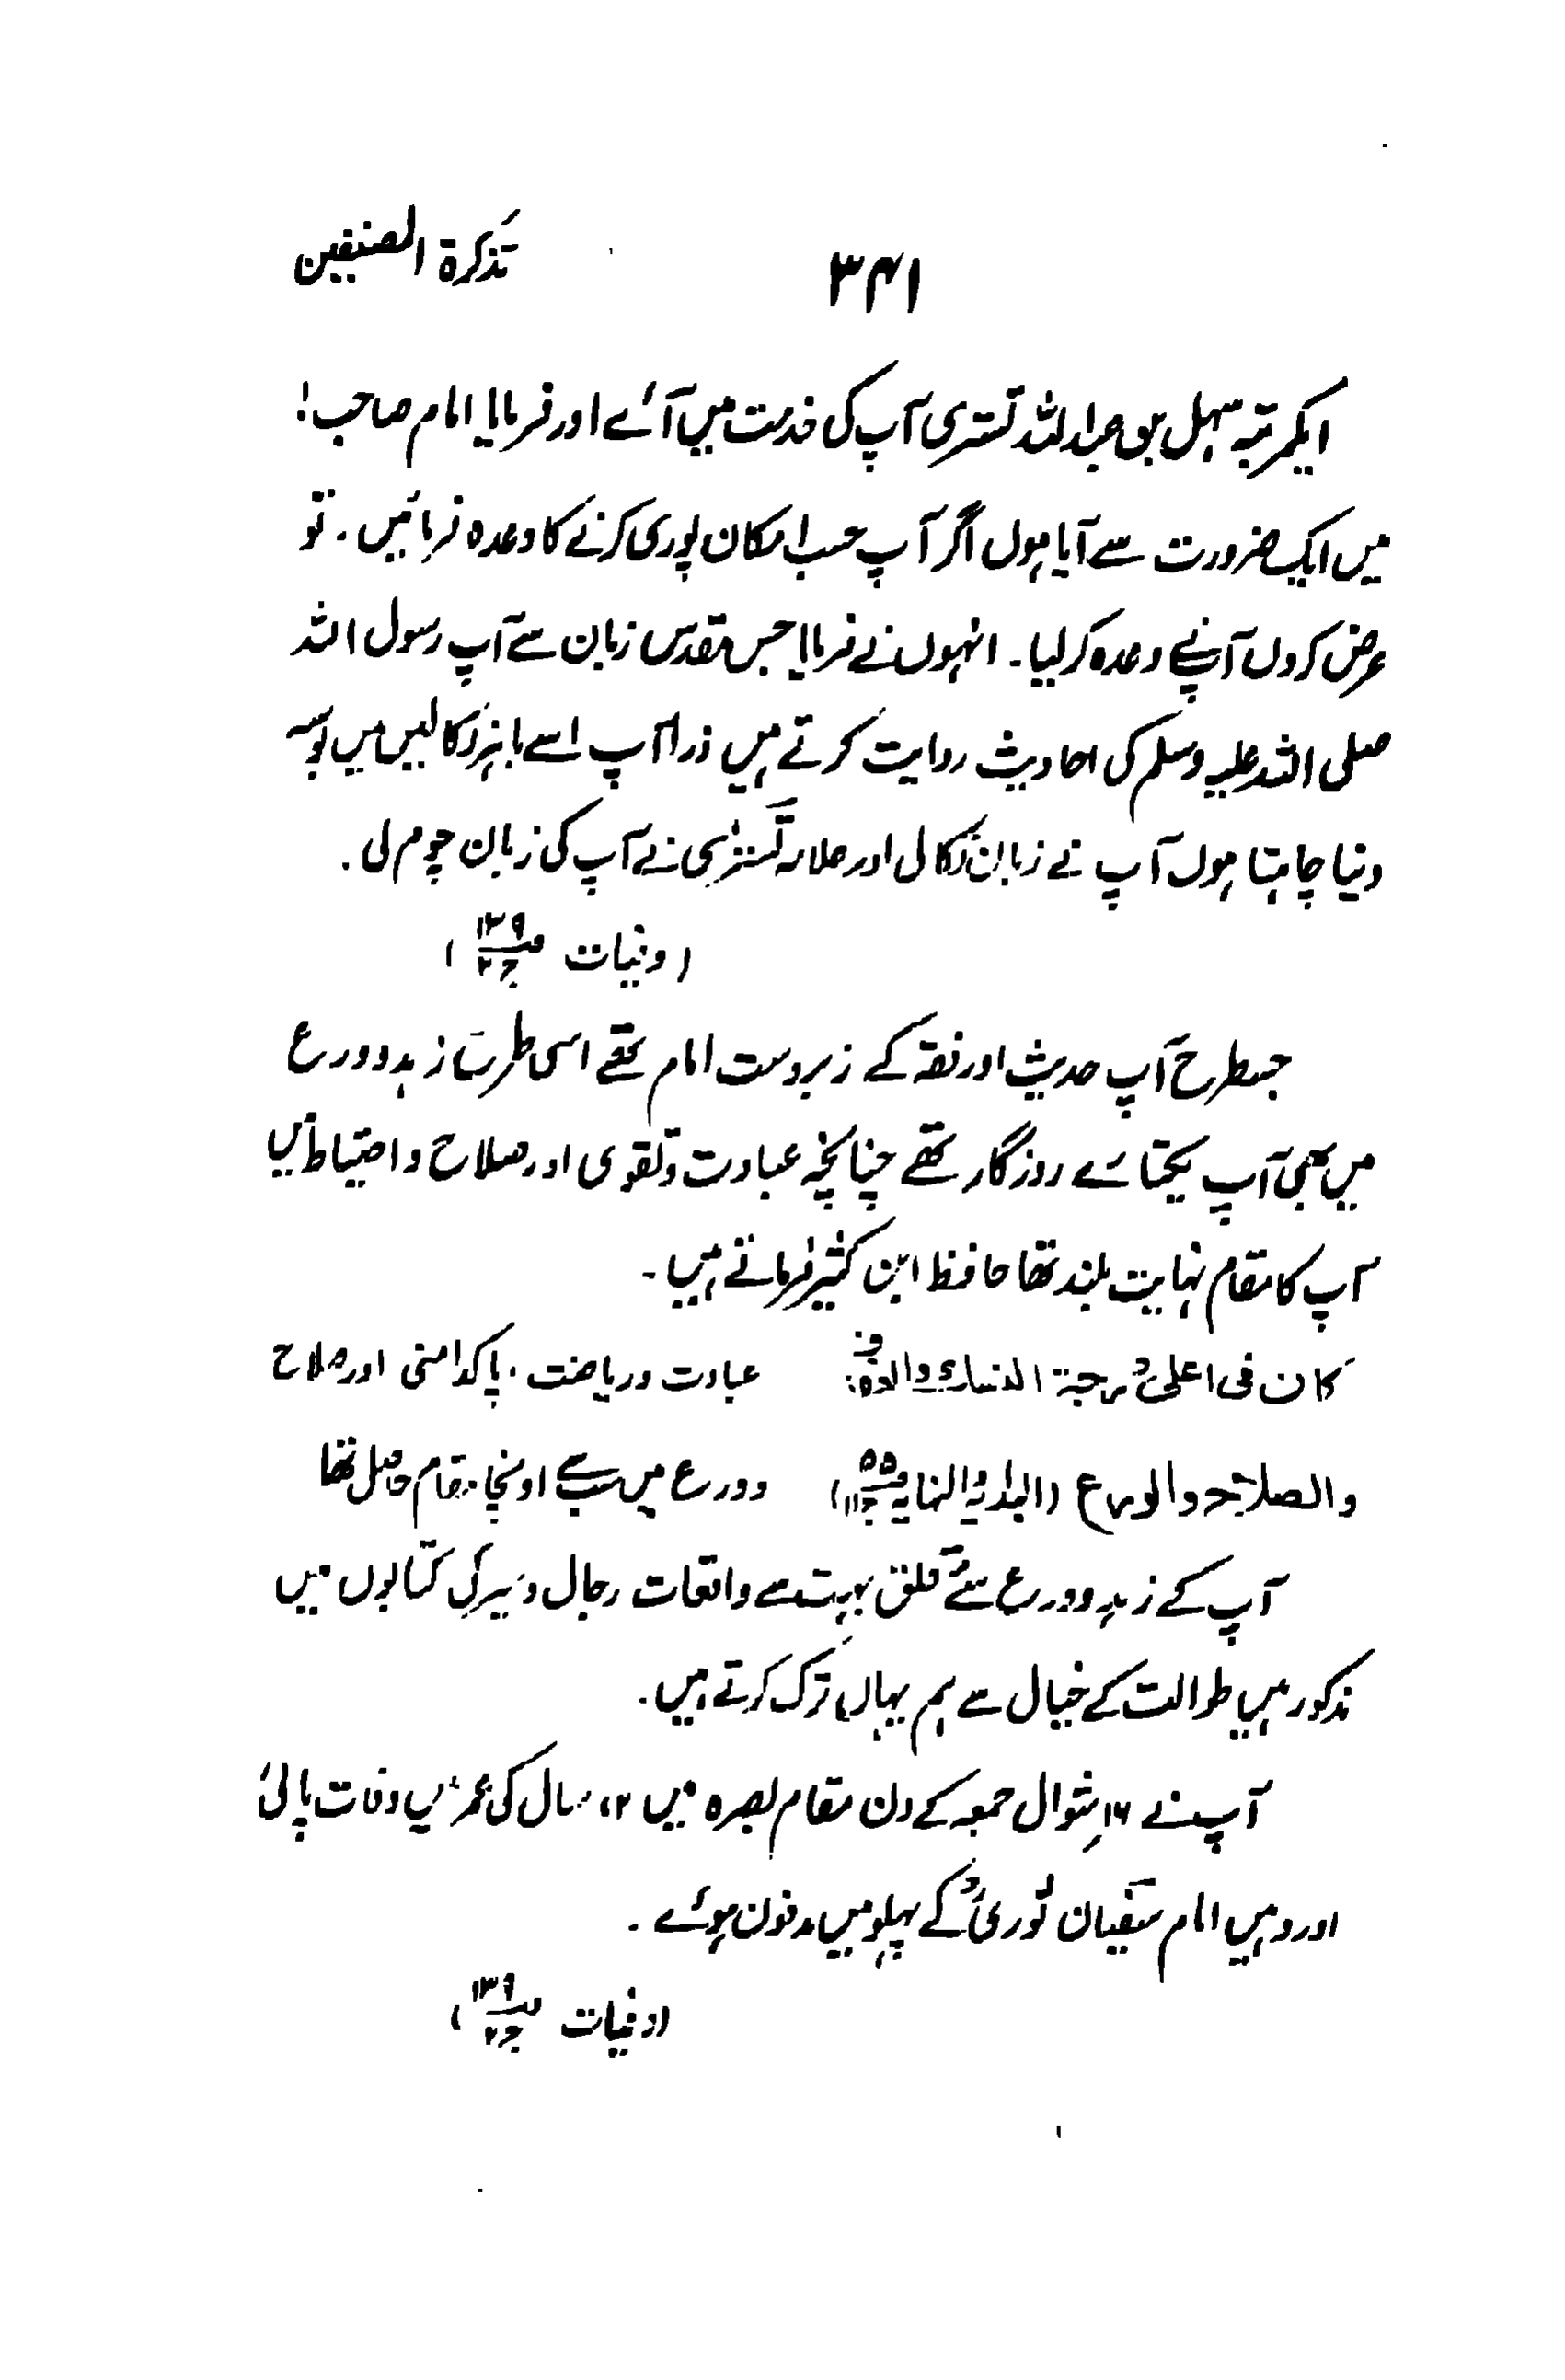 تذکرة المصنفین
۳۴۱
ایکمرتبہ سہل بن عبداللہ تستری آپ کی خدمت میں آئے اور فرمایا امام صاحب!
میں ایک ضرورت سے آیا ہوں اگر آپ حسب امکان پوری کرنے کا وعدہ فرمائیں ۔ تو
عرض کروں آپنے وعدہ کرلیا ۔ انہوں نے فرمایا جس مقدس زبان سے آپ رسول اللہ
صلی اللہ علیہ وسلم کی احادیث روایت کرتے ہیں ذرا آپ اسے باہر نکالیں میں بوسہ
دینا چاہتا ہوں آپ نے زبان نکالی اور علامہ تستری نے آپ کی زبان چوم لی ۔
(وفیات ص۱۳۹ ج۲)
جسطرح آپ حدیث اور فقہ کے زبردست امام تھے اسی طرح زہد و ورع
میں بھی آپ یکتائے روزگار تھے چنانچہ عبادت و تقوی اور صلاح و احتیاط میں
آپ کا مقام نہایت بلند تھا حافظ ابن کثیر فرماتے ہیں ۔
کان فی اعلیٰ درجة النساک والعفة عبادت و ریاضت ، پاکدامنی اور صلاح
والصلاح والورع (البدایة والنهایة ص۵۵ ج۱۱) و ورع میں سب سے اونچا مقام حاصل تھا
آپ کے زہد و ورع سے متعلق بہت سے واقعات رجال و سیر کی کتابوں میں
مذکور ہیں طوالت کے خیال سے ہم یہاں ترک کرتے ہیں ۔
آپ نے ۱۶؍شوال جمعہ کے دن مقام بصرہ میں سال کی عمر میں وفات پائی
اور وہیں امام سفیان ثوریؒ کے پہلو میں مدفون ہوئے ۔
(وفیات ص۱۳۹ ج۲)